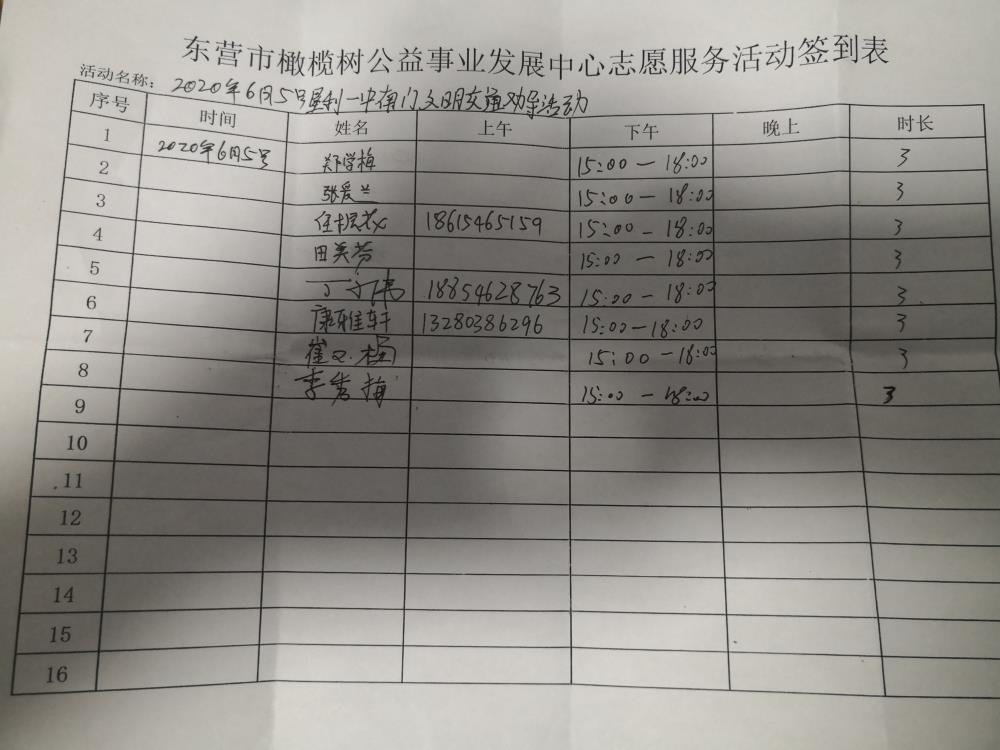 东营市橄榄树公益事业发展中心志愿服务活动签到表
活动名称：2020年6月5号垦利一中南门文明交通劝导活动
序号 时间 姓名 上午 下午 晚上 时长
1 2020年6月5号 郑学梅 15:00－18:00 3
2 张爱兰 15:00－18:00 3
3 18615465159 15:00－18:00 3
4 田美芬 15:00－18:00 3
5 丁守伟 18854628763 15:00－18:00 3
6 康雅轩 13280386296 15:00－18:00 3
7 崔 15:00－18:00 3
8 李秀梅 15:00－18:00 3
9
10
11
12
13
14
15
16